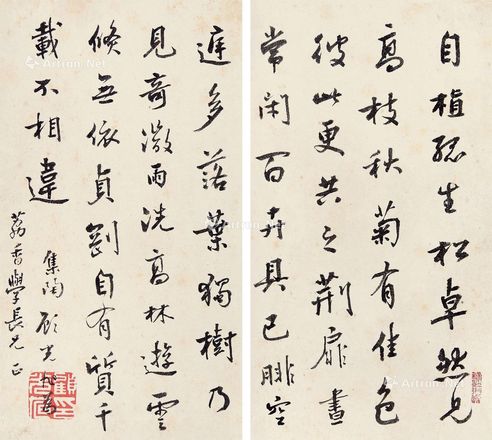 自植孤生松卓然見
高枝秋菊有佳色
彼此更共之荊扉晝
常閑百卉具已腓空
庭多落葉獨樹乃
見奇微雨洗高林遊雲
倏無依貞剛自有質千
載不相違
集陶 顧光
荔香學長兄正
Artron.Net